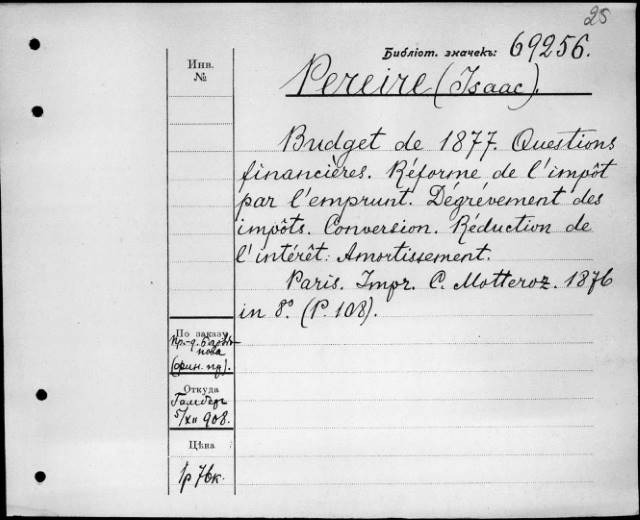 25
Библiот. значекъ: 69256.
Инв.
№
Pereire (Isaac).
Budget de 1877. Questions
financières. Réforme de l'impôt
par l'emprunt. Dégrévement des
impôts. Conversion. Réduction de
l'intérêt. Amortissement.
Paris. Impr. C. Motteroz. 1876
in 8º. (P. 108).
По заказу
(фин. пр).
Откуда
Гамберг
5/XII 908.
Цѣна
1р 76к.